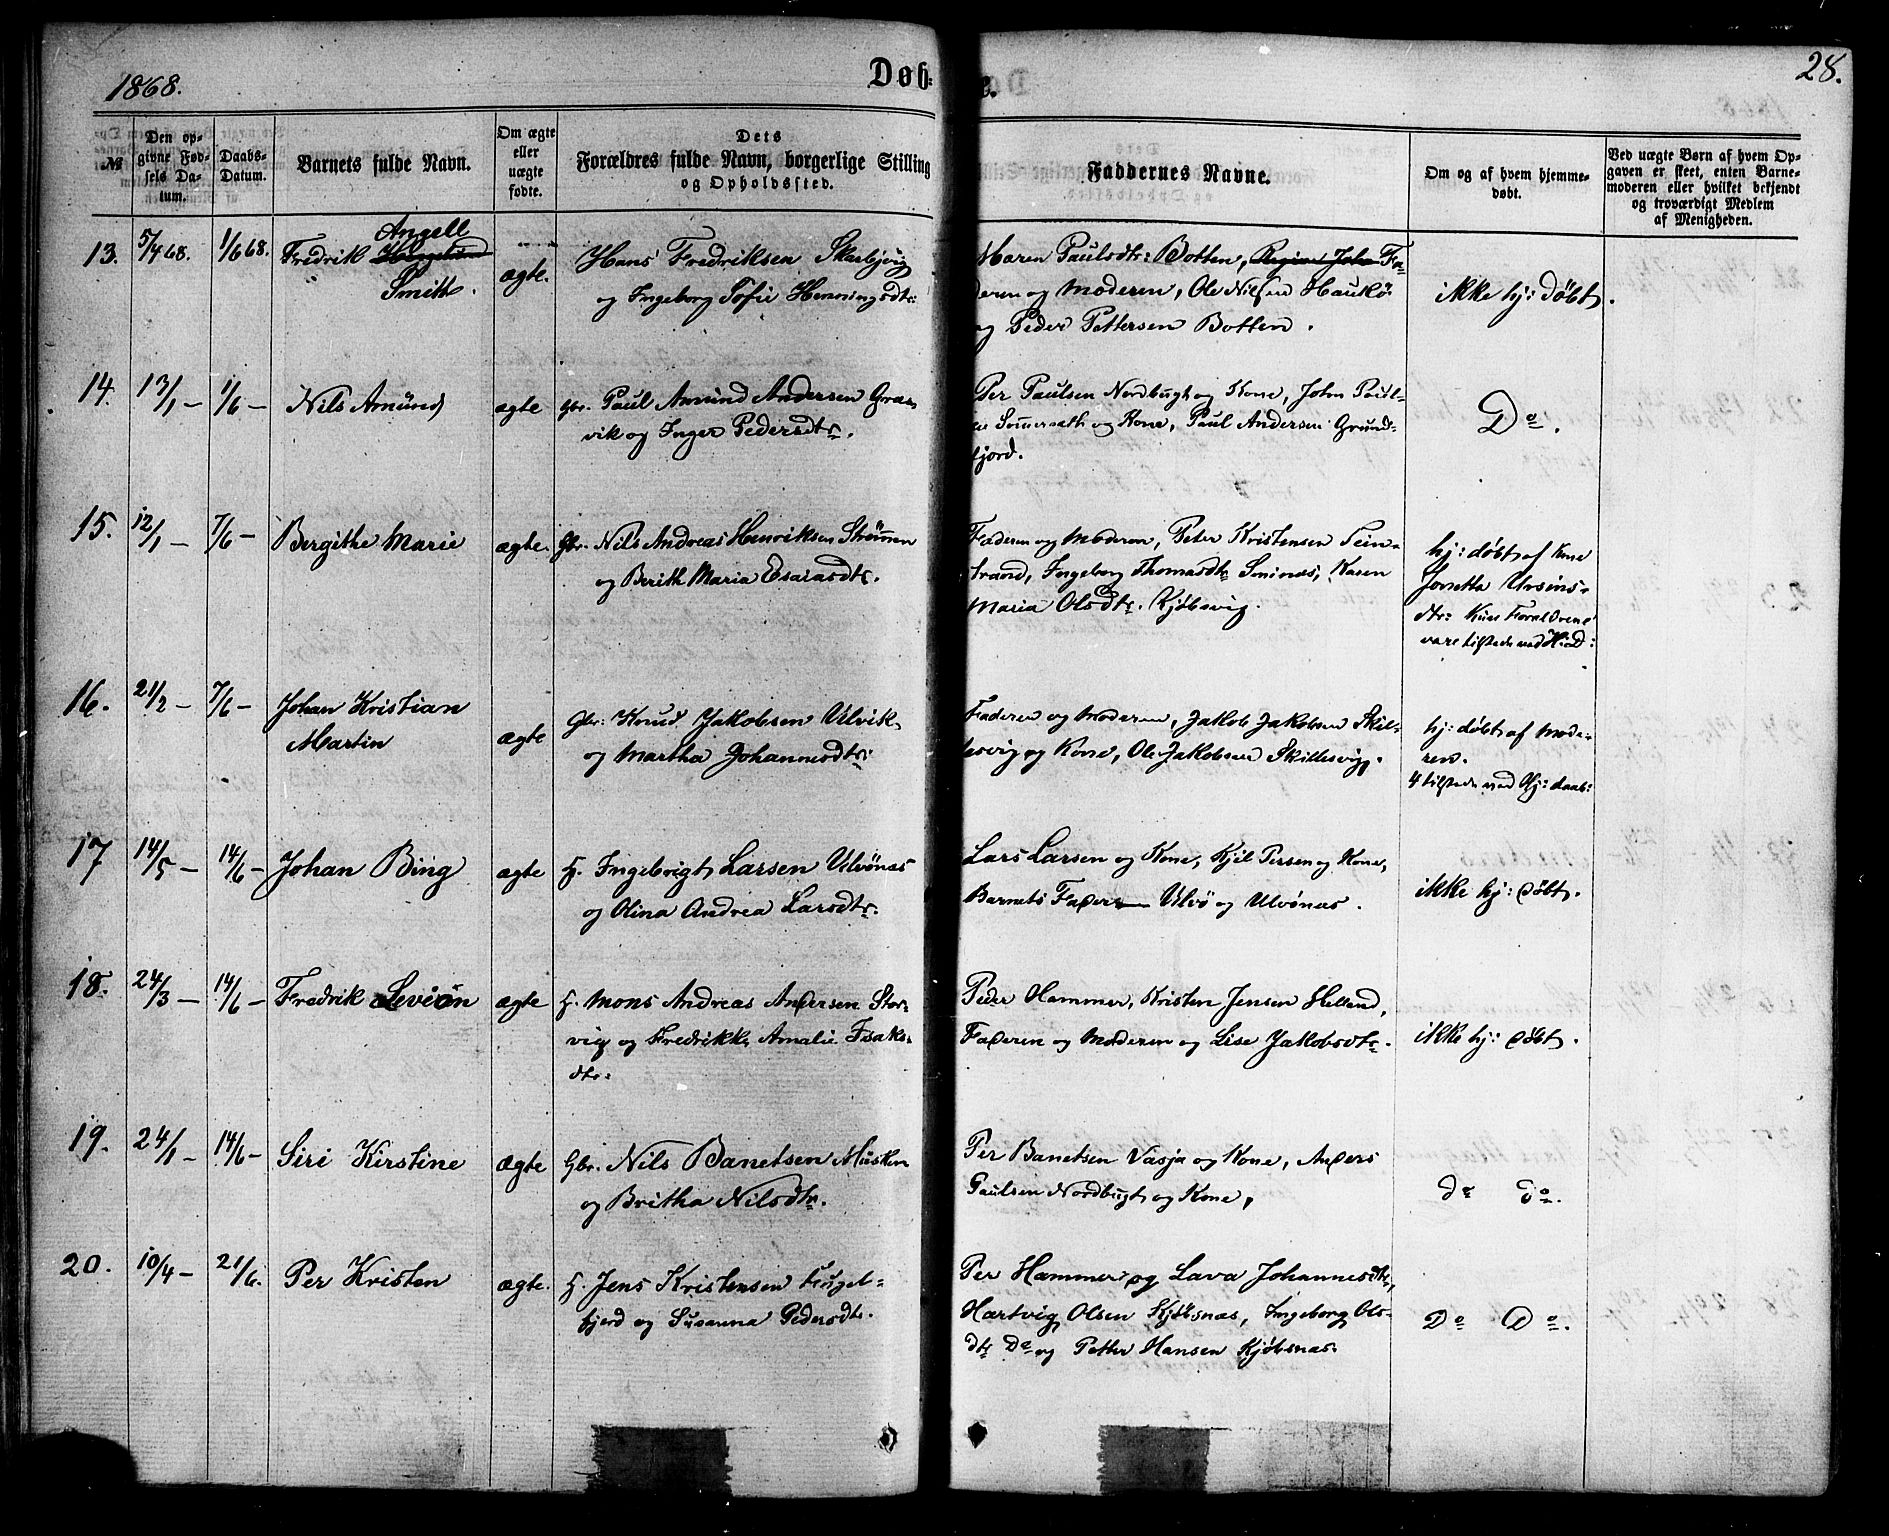 1868.
Døb-
e.
28.
№
Den op-
givne Fød-
sels Da-
tum.
Daabs-
Datum.
Barnets fulde Navn.
Om ægte
eller
uægte
fødte.
Dets
Forældres fulde Navn, borgerlige Stilling
og Opholdssted.
Faddernes Navne.
Om og af hvem hjemme-
døbt.
Ved uægte Børn af hvem Op-
gaven er skeet, enten Barne-
moderen eller hvilket bekjendt
og troværdigt Medlem
af Menigheden.
13. 5/4 68. 1/6 68. Fredrik Angell
Smith.
ægte.
Hans Fredriksen
og Ingeborg Sofie Henningsdtr:
Maren Paulsdtr: Botten, Fa-
deren og Moderen, Ole Nilsen
og Peder Pettersen Botten.
ikke hj: døbt.
14. 13/1 – 1/6 – Nils Amund ægte
Gbr. Paul Amund Andersen Græs-
vik og Inger Pedersdtr.
Per Paulsen Nordbugt og Kone, John Paul-
og Kone, Paul Andersen Grund-
fjord.
Do.
15. 12/1 – 7/6 – Bergithe Marie ægte.
Gbr. Nils Andreas Henriksen Strömmen
og Berith Maria Esaiasdtr.
Faderen og Moderen, Peter Kristensen
strand, Ingeborg Thomasdtr Karen
Maria Olsdtr. Kjöbsvig.
hj: döbt af Kone
Jonetta Ursins-
dtr: Kun Forældrene
vare tilstede ved H: D:
16. 21/2 – 7/6 – Johan Kristian
Martin
ægte
Gbr: Knud Jakobsen Ulvik
og Martha Johannesdtr:
Faderen og Moderen, Jakob Jakobsen Skil-
lesvig og Kone, Ole Jakobsen Skillesvig.
hj: döbt af Mode-
ren.
4 tilstede ved Hj: daab:
17 14/5 – 14/6 – Johan Bing ægte
H. Ingebrigt Larsen Ulvönæs
og Olina Andrea Larsdtr.
Lars Larsen og Kone, Kjil Persen og Kone,
Barnets Fader Ulvö og Ulvönæs.
ikke hj: döbt.
18. 24/3 – 14/6 – Fredrik Leviön ægte
H. Mons Andreas Andersen Stor-
vig og Fredrikke Amalie Isaks-
dtr:
Peder Hammer, Kristen Jensen Helland,
Faderen og Moderen og Lise Jakobsdtr.
ikke hj: döbt.
19. 24/1 – 14/6 – Siri Kirstine ægte
Gbr. Nils Banetsen Musken
og Britha Nilsdtr.
Per Banetsen Vasja og Kone, Anders
Paulsen Nordbugt og Kone,
do do.
20. 10/4 – 21/6. Per Kristen ægte.
H. Jens Kristensen Fugel-
fjord og Susanna Pedersdtr.
Per Hammer og Lava Johannesdtr,
Hartvig Olsen Kjöbsnæs, Ingeborg Ols-
dtr Do og Petter Hansen Kjöbsnæs
Do Do.